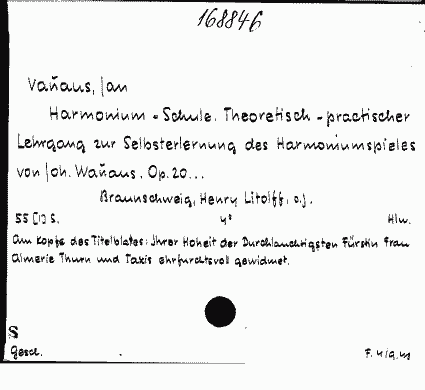 168846
Vaňaus, Jan
Harmonium-Schule. Theoretisch-practischer
Lehrgang zur Selbsterlernung des Harmoniumspieles
von Joh. Waňaus. Op. 20...
Braunschweig, Henry Litolff, o. j.
55 [1] S. 4° Hlw.
Am Kopfe des Titelblates: Ihrer Hoheit der Durchlauchtigsten Fürstin Frau
Almerie Thurn und Taxis ehrfurchtsvoll gewidmet.
S
Gesch.